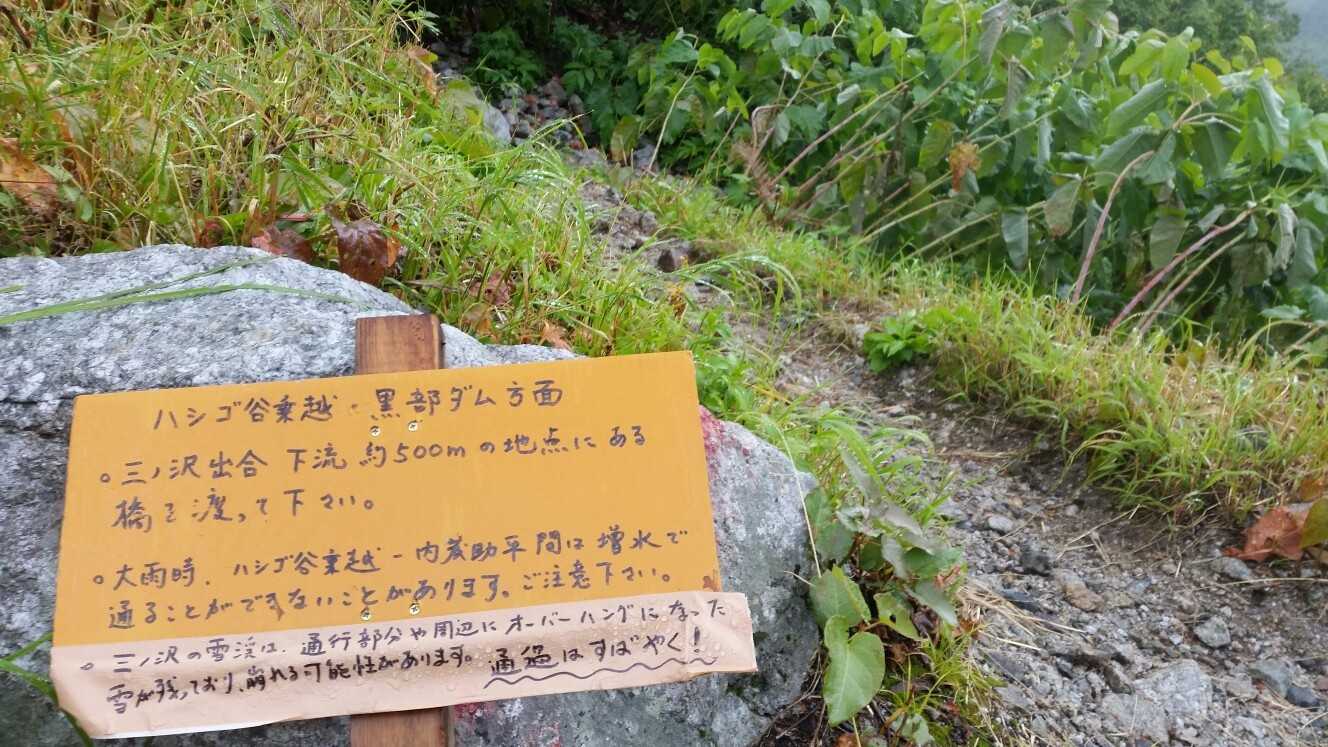 ハシゴ谷乗越・黒部ダム方面
○三ノ沢出合 下流 約500mの地点にある
橋を渡って下さい。
○大雨時、ハシゴ谷乗越-内蔵助平間は増水で
通ることができないことがあります。ご注意下さい。
○三ノ沢の雪渓は、通行部分や周辺にオーバーハングになった
雪が残っており、崩れる可能性があります。通過はすばやく!